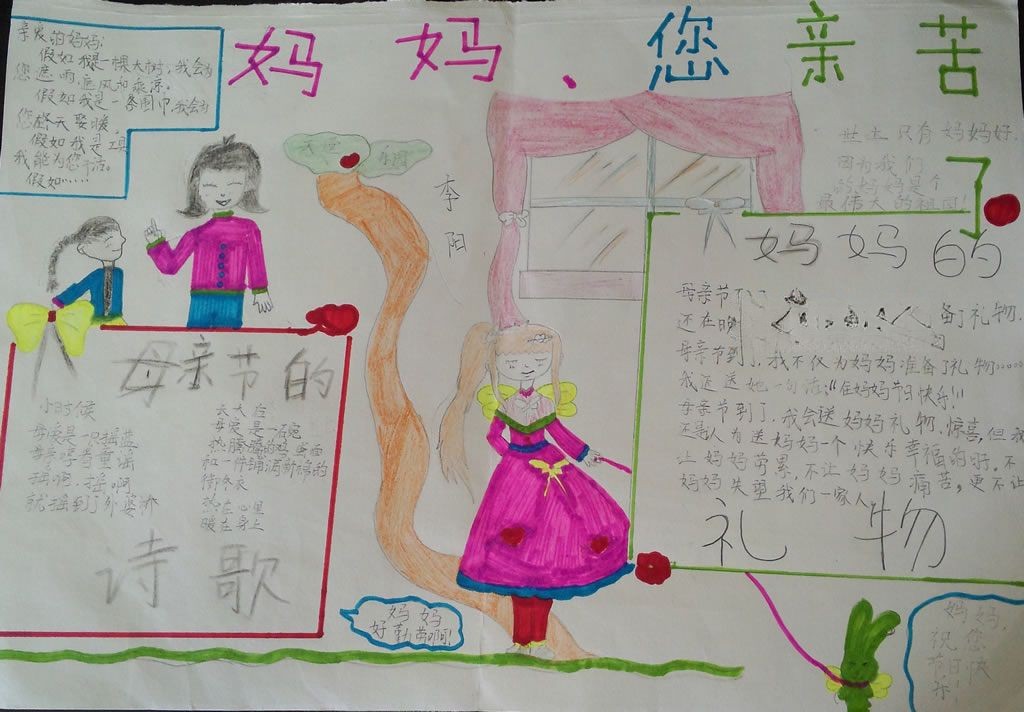 妈妈、您亲苦
亲爱的妈妈:
假如我是一棵大树，我会为
您遮雨,庶风和乘凉。
假如我是一条围巾,我会为
您终天娶暖,
假如我是工具
我能为您干活。
假如……
天空
乐园
李阳
世上只有妈妈好.
因为我们
的妈妈是个
最伟大的祖国!
妈妈的
母亲节
还在
备了礼物.
母亲节到了,我不仅为妈妈准备了礼物……
我还送她一句话:"住妈妈节日快乐!"
母亲节到了,我会送妈妈礼物,惊喜,但我
不是人为送妈妈一个快乐幸福的好。不
让妈妈劳累,不让妈妈痛苦,更不让
妈妈失望我们一家人
礼物
母亲节的
小时候
母爱是一只摇蓝
母亲哼着童谣
摇啊,摇啊
就摇到了外婆桥
长大后
母爱是一石宽
热腾腾的鸡蛋面
和一件铺满新棉的
御冬衣
热在心里
暖在身上
诗歌
妈妈
好勤劳啊!
妈妈,
祝您
节日快
乐!